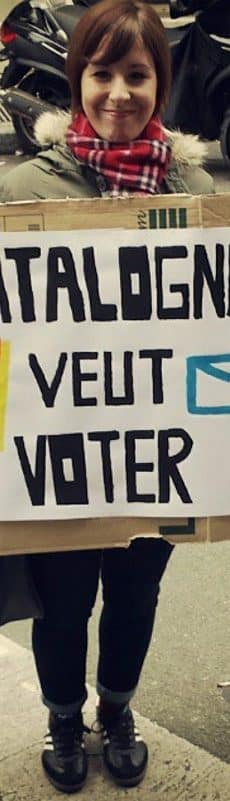 ATALOGN
VEUT
VOTER